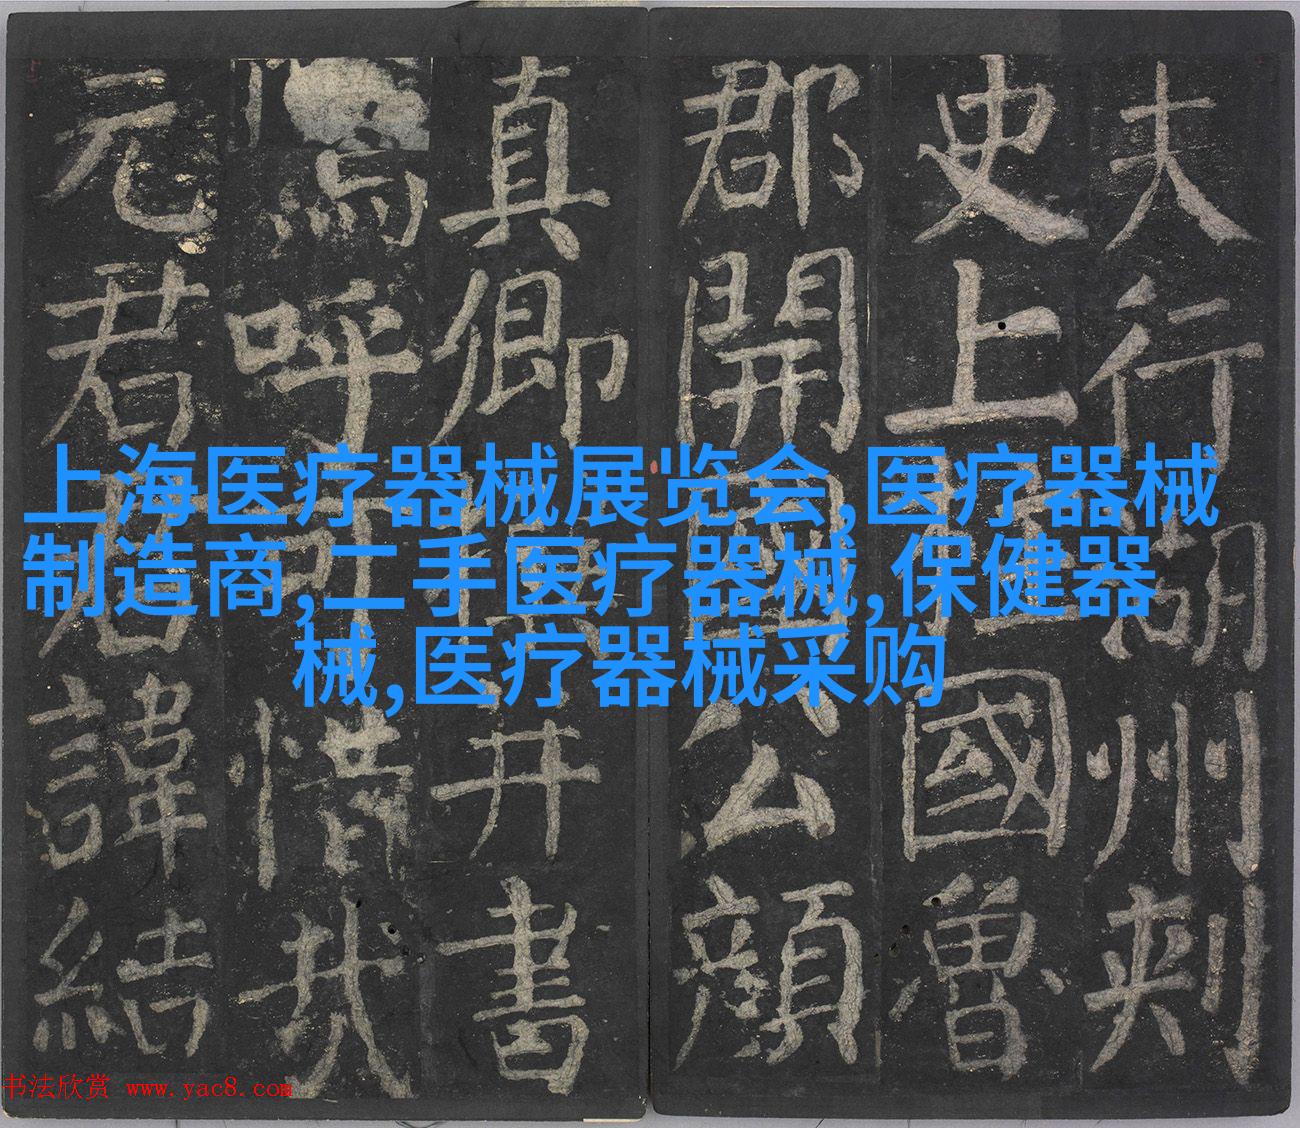 上海医疗器械展览会,医疗器械
制造商,二手医疗器械,保健器
械,医疗器械采购
夫行湖州刺
史上柱國魯
郡開國公顏
真卿撰并書
嗚呼可惜哉
元君君諱結
书法欣赏 www.yac8.com